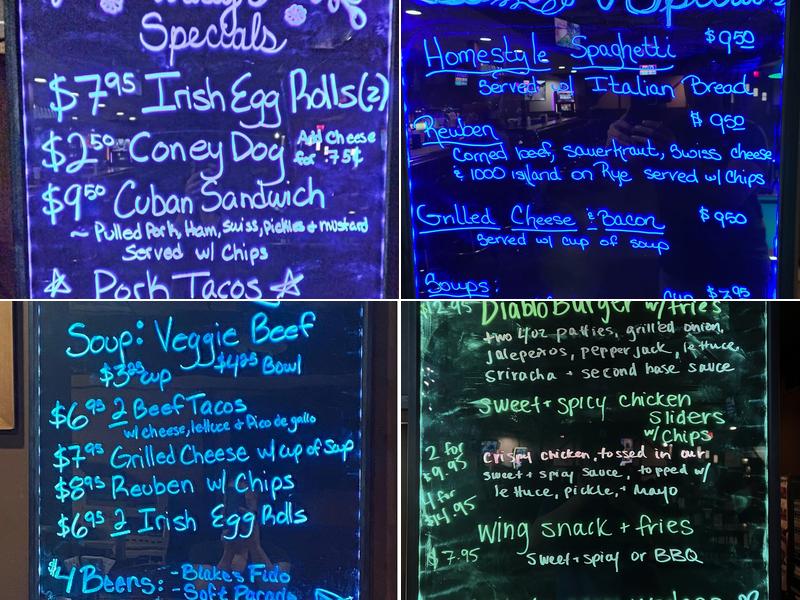 Specials
$7.95 Irish Egg Rolls (2)
$2.50 Coney Dog Add Cheese
for .75¢
$9.50 Cuban Sandwich
~ Pulled Pork, Ham, Swiss, Pickles + mustard
Served w/ Chips
☆ Pork Tacos ☆
Specials
Homestyle Spaghetti $9.50
Served w/ Italian Bread
Reuben $9.50
Corned beef, sauerkraut, Swiss cheese,
& 1000 island on Rye served w/ Chips
Grilled Cheese & Bacon $9.50
Served w/ cup of soup
Soups:
Cup $3.95
Soup: Veggie Beef
cup $4.95 Bowl
$6.95 2 Beef Tacos
w/ cheese, lettuce + Pico de gallo
$7.95 Grilled Cheese w/ cup of Soup
$8.95 Reuben w/ Chips
$6.95 2 Irish Egg Rolls
$4 Beers: -Blakes Fido
-Soft Parade
$12.95 Diablo Burger w/ fries
two 4oz patties, grilled onion,
Jalepeños, pepper jack, lettuce,
Sriracha + second base sauce
Sweet + spicy chicken
Sliders
w/ Chips
2 for
$9.95
4 for
$14.95
Crispy chicken, tossed in our
sweet + spicy sauce, topped w/
lettuce, pickle, + Mayo
Wing snack + fries
$7.95 Sweet + spicy or BBQ